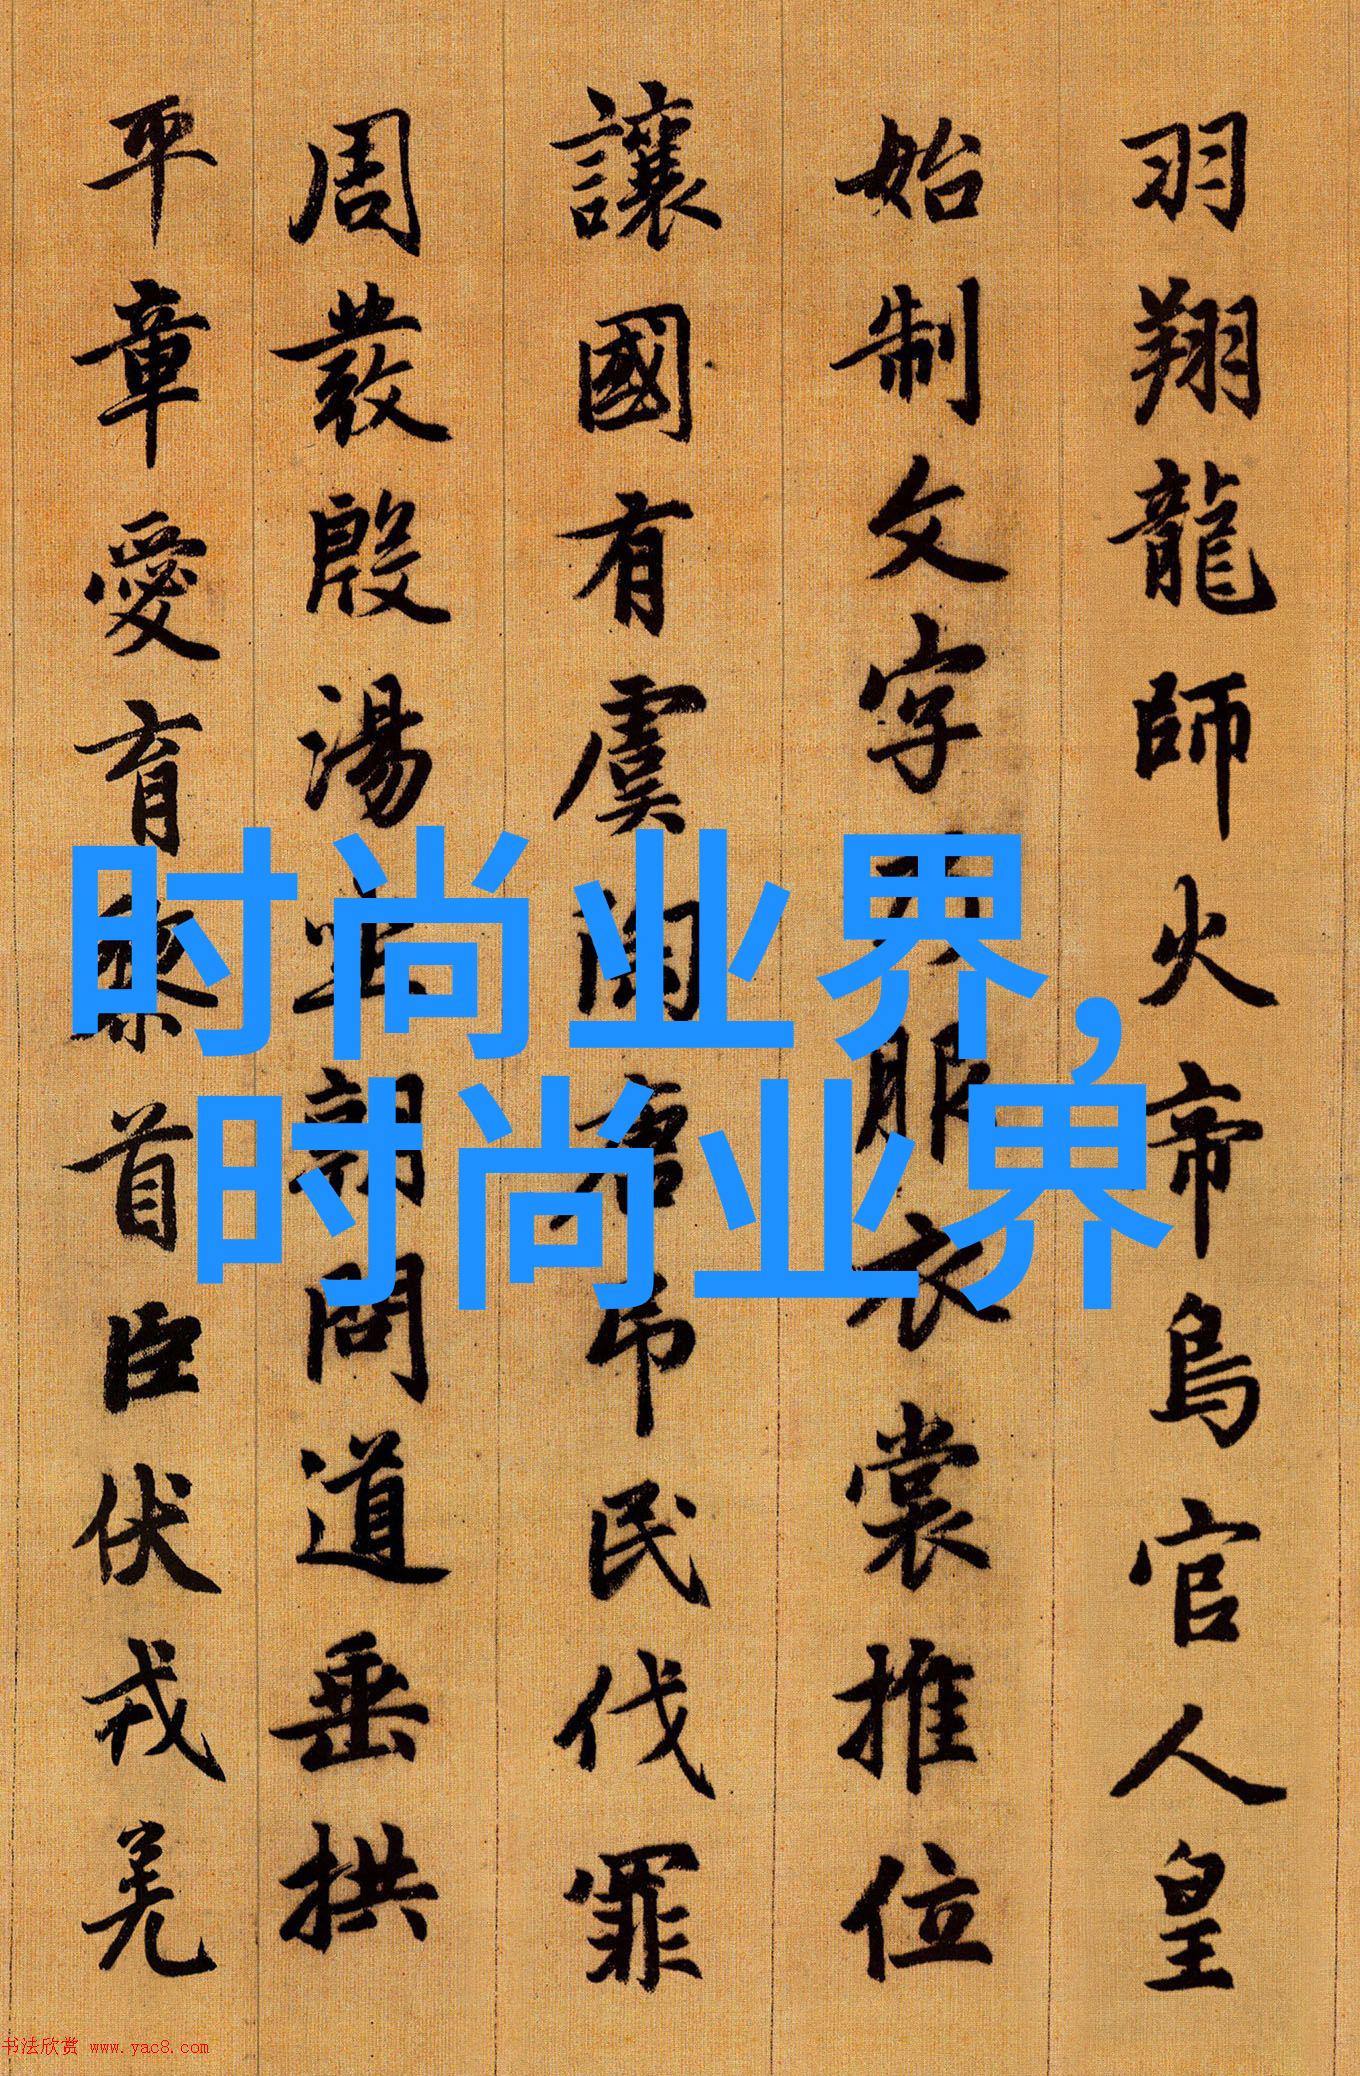 羽翔龍師火帝鳥官人皇
始制文字服衣裳推位
讓國有虞陶唐吊民伐罪
周發殷湯坐朝問道垂拱
平章愛育黎首臣伏戎羌
时尚业界,
时尚业界
书法欣赏 www.yac8.com